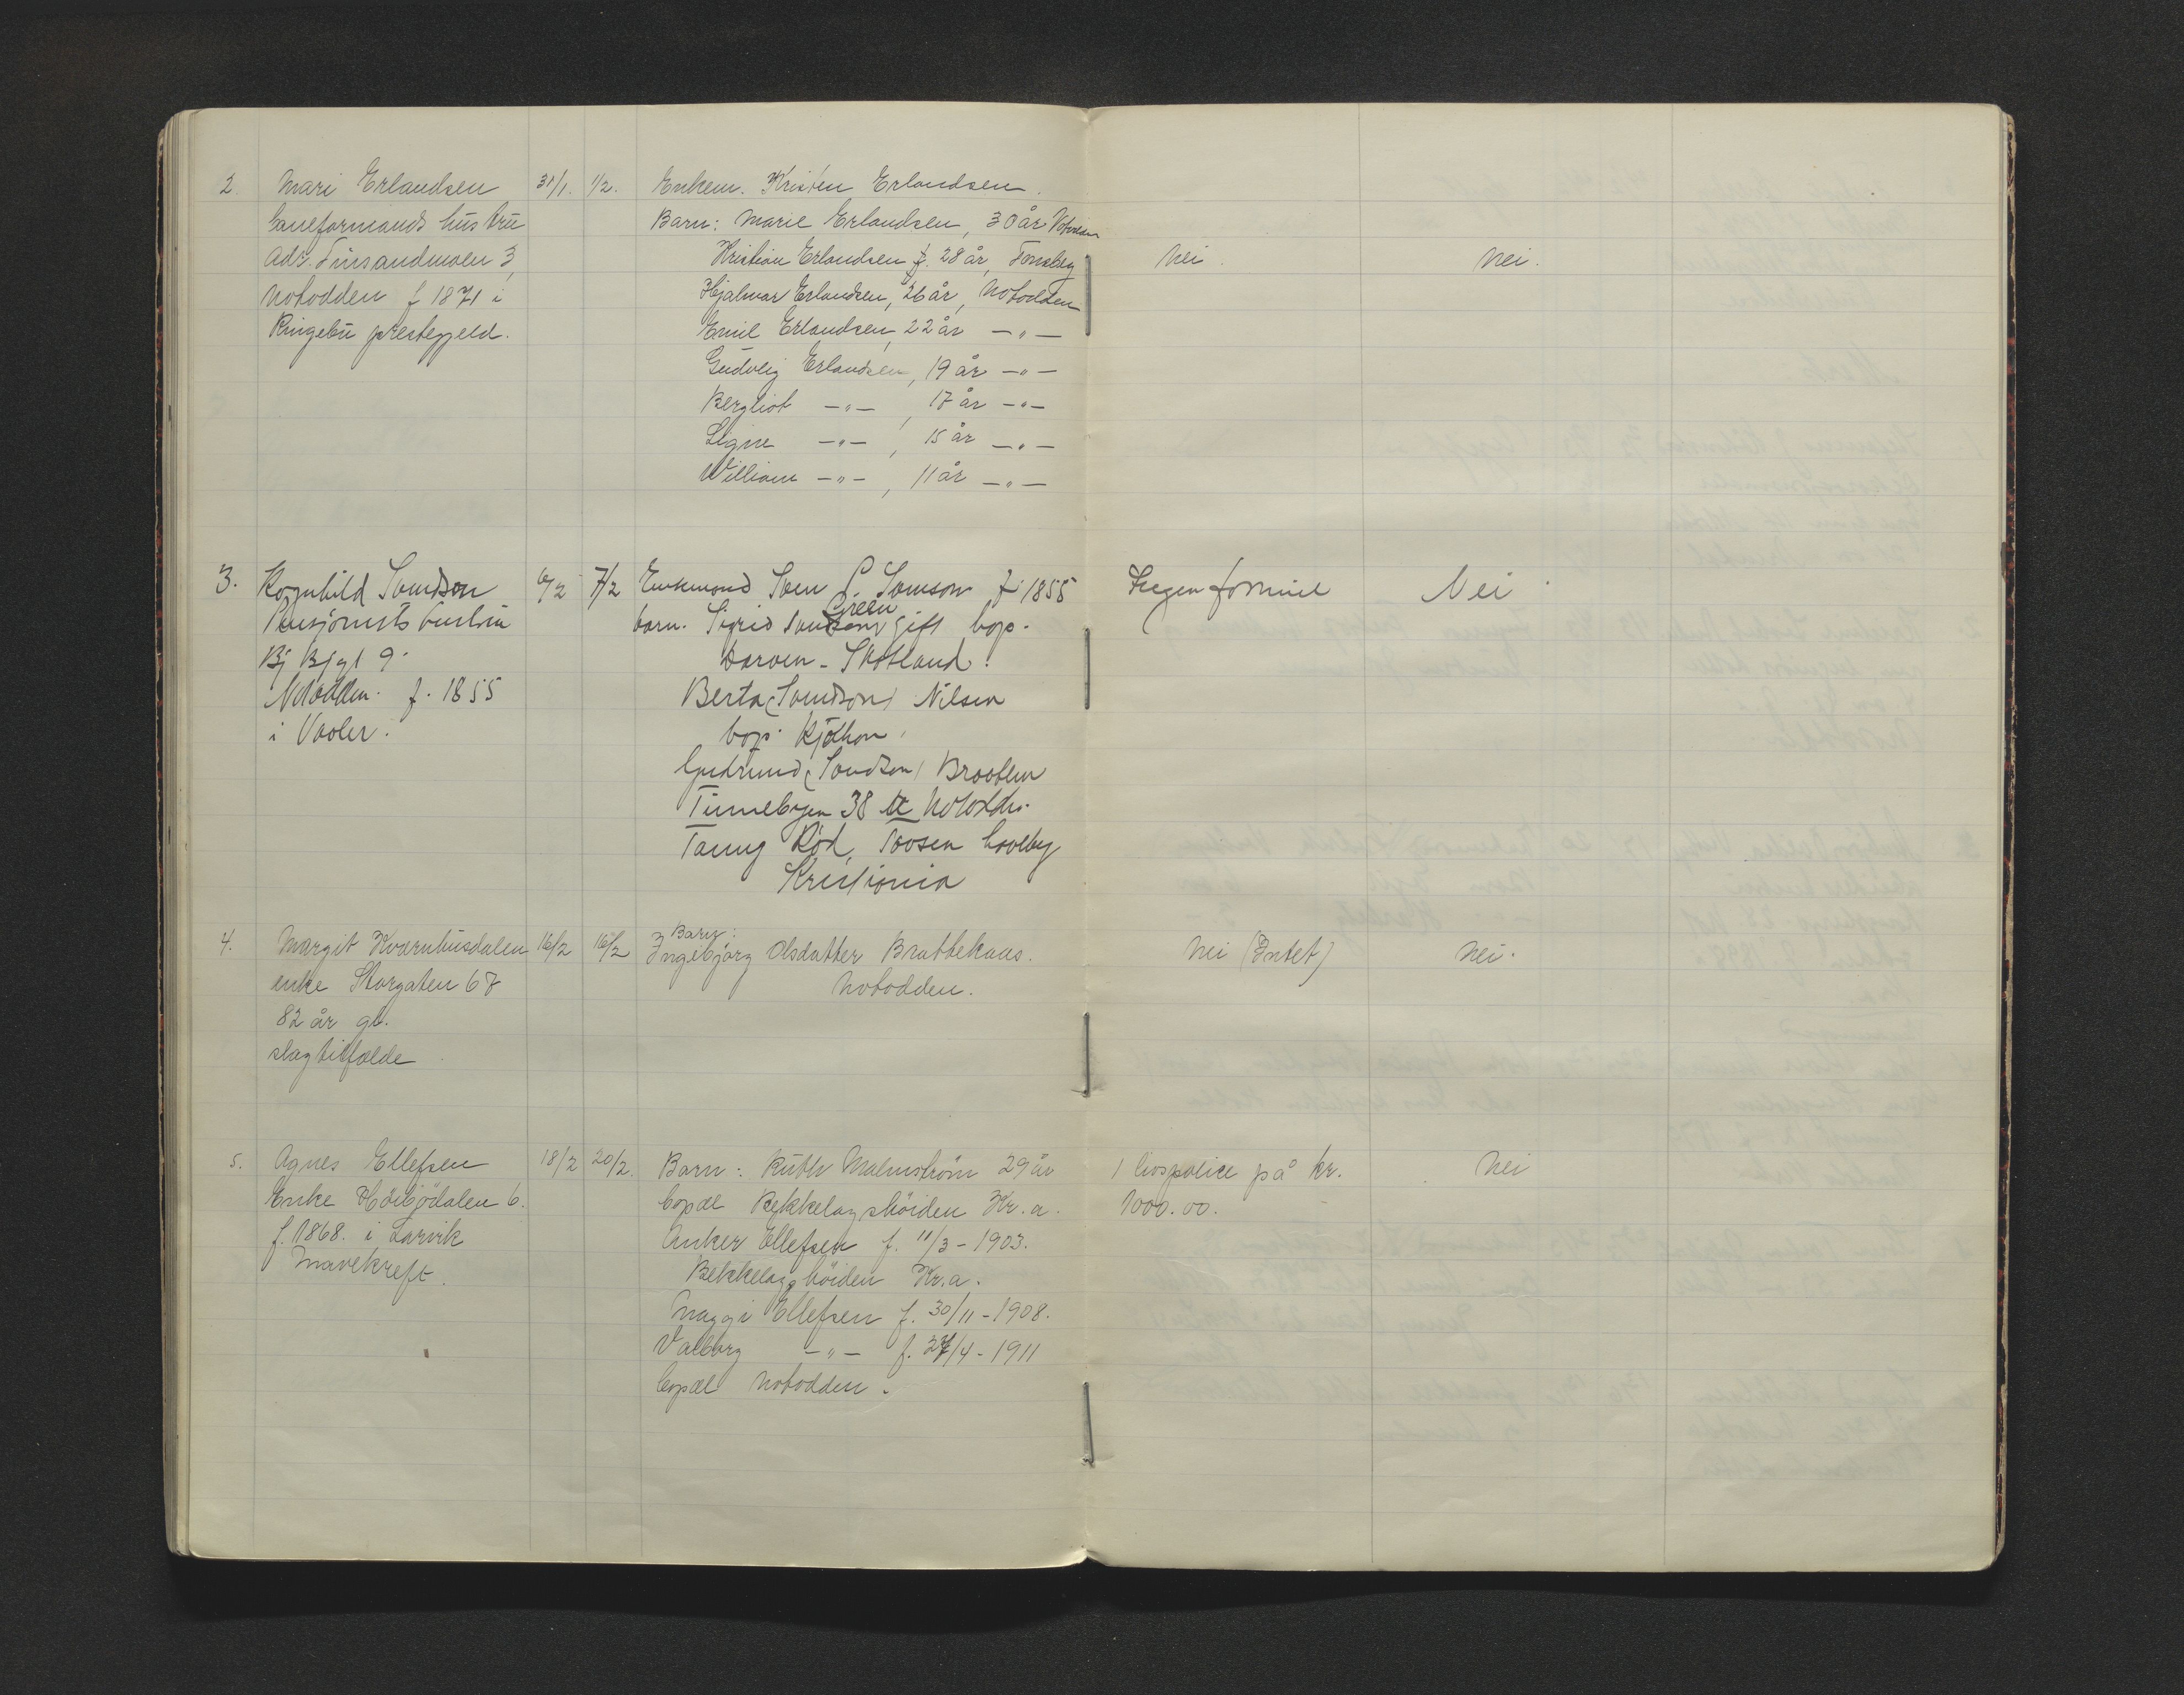 2. Mari Erlandsen 31/1. 1/2. Enkem. Kristen Erlandsen.
baneformands hustru Barn: Marie Erlandsen, 30 år Notodden
Adr. Tinsandmoen 3, Kristian Erlandsen f. 28 år, Tønsberg Nei. Nei.
Notodden f 1871 i Hjalmar Erlandsen, 26 år, Notodden
Ringebu prestegjeld. Emil Erlandsen, 22 år —"—
Gudveig Erlandsen, 19 år —"—
Bergliot —"—, 17 år —"—
Signe —"—, 15 år —"—
William —"—, 11 år —"—
3. Ragnhild Samdson 6/2 7/2 Enkemand Sven S. Samson f 1855 Ingen formue Nei
Pensjonists hustru barn. Sigrid Green gift bop.
Bj 9. Darven - Skotland.
Notodden. f. 1855 Berta (Samdson) Nilsen
i Vaaler. bop. Rjukan
Gudrund (Samdson) Braaten
Tinnebyen 38 Notodden.
Kristiania
4. Margit Kvernhusdalen 16/2 16/2 Barn: Ingebjørg Olsdatter Brattekaas. Nei (Intet) Nei.
enke Storgaten 67 Notodden.
82 år gl.
slagtilfælde
5. Agnes Ellefsen 18/2 20/2. Barn: Ruth Malmstrøm 29 år 1 livspolice på kr. Nei
Enke Høibjødalen 6. bopæl Bekkelagshøiden Kr.a. 1000.00.
f. 1868. i Larvik Anker Ellefsen f. 11/3 - 1903.
Mavekreft. Bekkelagshøiden Kr.a.
Maggi Ellefsen f. 30/11 - 1908.
Valborg —"— f. 27/4 - 1911
bopæl Notodden.